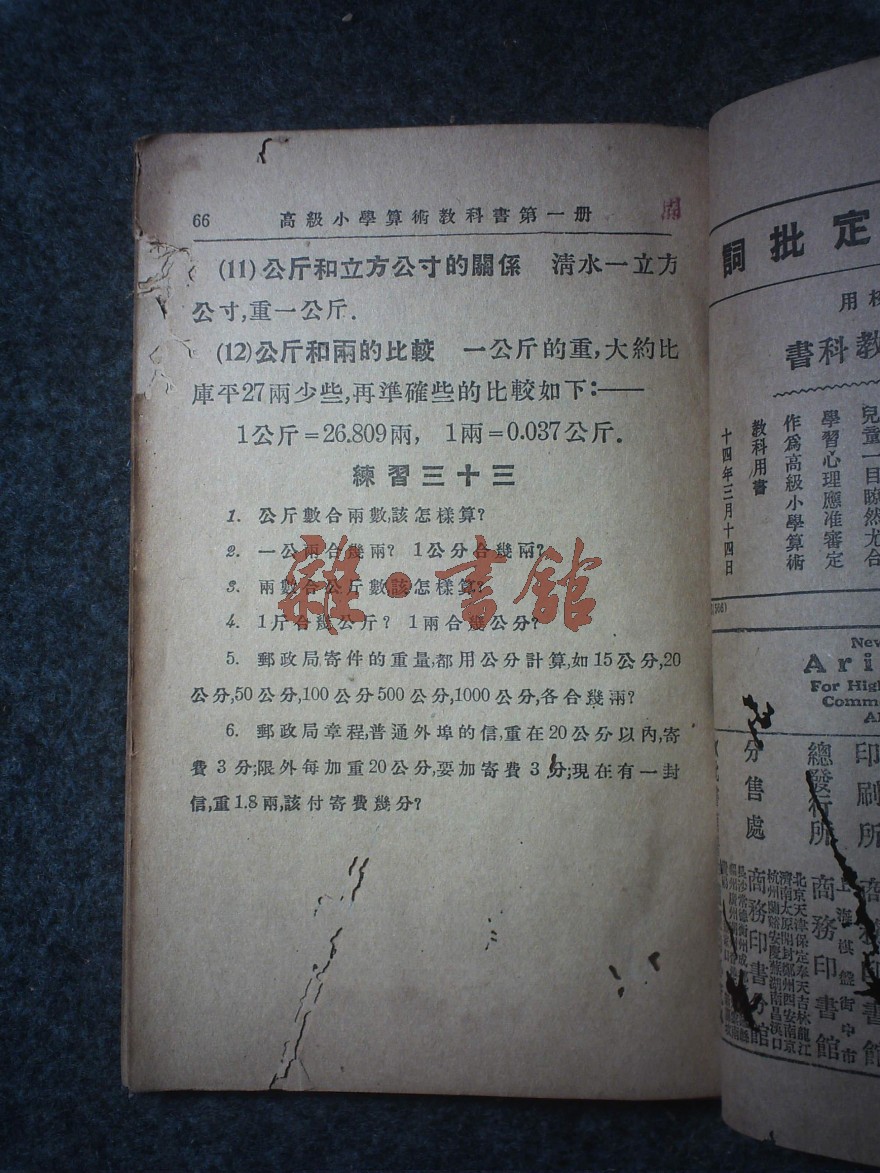 66 高級小學算術教科書第一册
(11)公斤和立方公寸的關係 清水一立方
公寸,重一公斤.
(12)公斤和兩的比較 一公斤的重,大約比
庫平27兩少些,再準確些的比較如下:——
1公斤=26.809兩, 1兩=0.037公斤.
練習三十三
1. 公斤數合兩數,該怎樣算?
2. 一公兩合幾兩? 1公分合幾兩?
3. 兩數合公斤數該怎樣算?
4. 1斤合幾公斤? 1兩合幾公分?
5. 郵政局寄件的重量,都用公分計算,如15公分,20
公分,50公分,100公分500公分,1000公分,各合幾兩?
6. 郵政局章程,普通外埠的信,重在20公分以內,寄
費3分;限外每加重20公分,要加寄費3分;現在有一封
信,重1.8兩,該付寄費幾分?
雜·書館
定批詞
用
教科書
兒童一目瞭然尤合
學習心理應准審定
作爲高級小學算術
教科用書
十四年三月十四日
New
Ari
For High
Comm
印刷所
總發行所
分售處
商務印書館
上海棋盤街中市
商務印書館
商務印書分館
北京天津保定奉天吉林龍江
濟南太原開封鄭州西安南京
杭州蘭谿安慶蕪湖南昌漢口